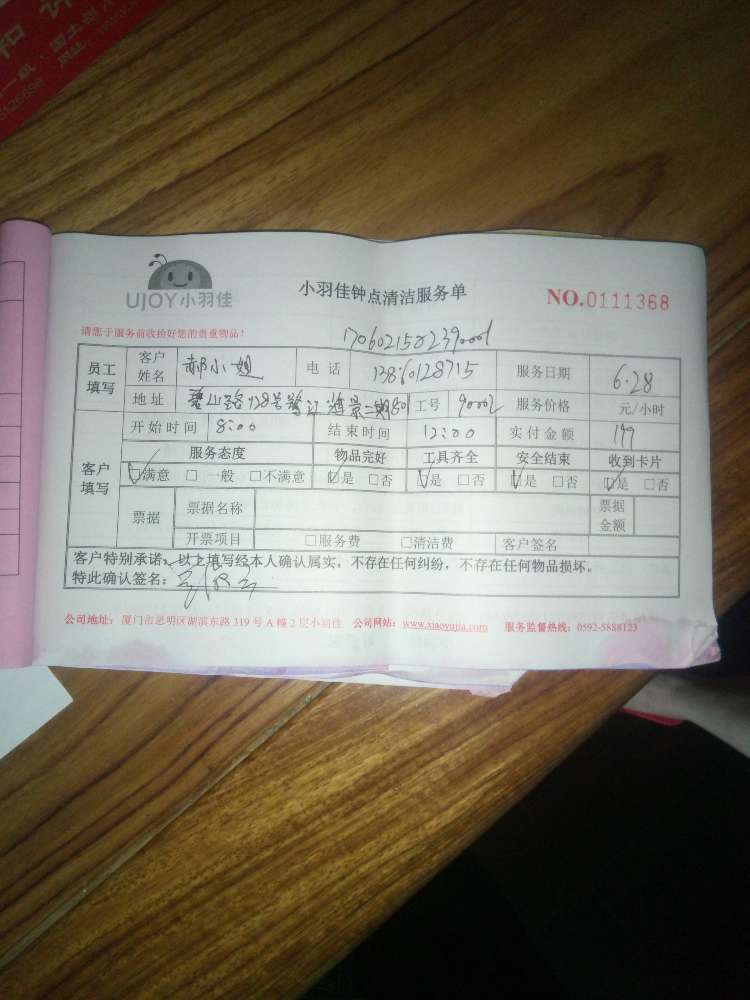 和
UJOY小羽佳
小羽佳钟点清洁服务单
NO.0111368
请您于服务前收捡好您的贵重物品!
1706021502390001
员工填写 客户姓名 郝小姐 电话 13860128715 服务日期 6.28
地址 碧山路128号 海景二期801 工号 90002 服务价格 元/小时
开始时间 8:00 结束时间 12:00 实付金额 199
客户填写 服务态度 物品完好 工具齐全 安全结束 收到卡片
☑满意 □一般 □不满意 ☑是 □否 ☑是 □否 ☑是 □否 ☑是 □否
票据 票据名称 票据金额
开票项目 □服务费 □清洁费 客户签名
客户特别承诺:以上填写经本人确认属实,不存在任何纠纷,不存在任何物品损坏。
特此确认签名:
公司地址:厦门市思明区湖滨东路 319 号 A 幢 2 层小羽佳 公司网站:www.xiaoyujia.com 服务监督热线:0592-5888123